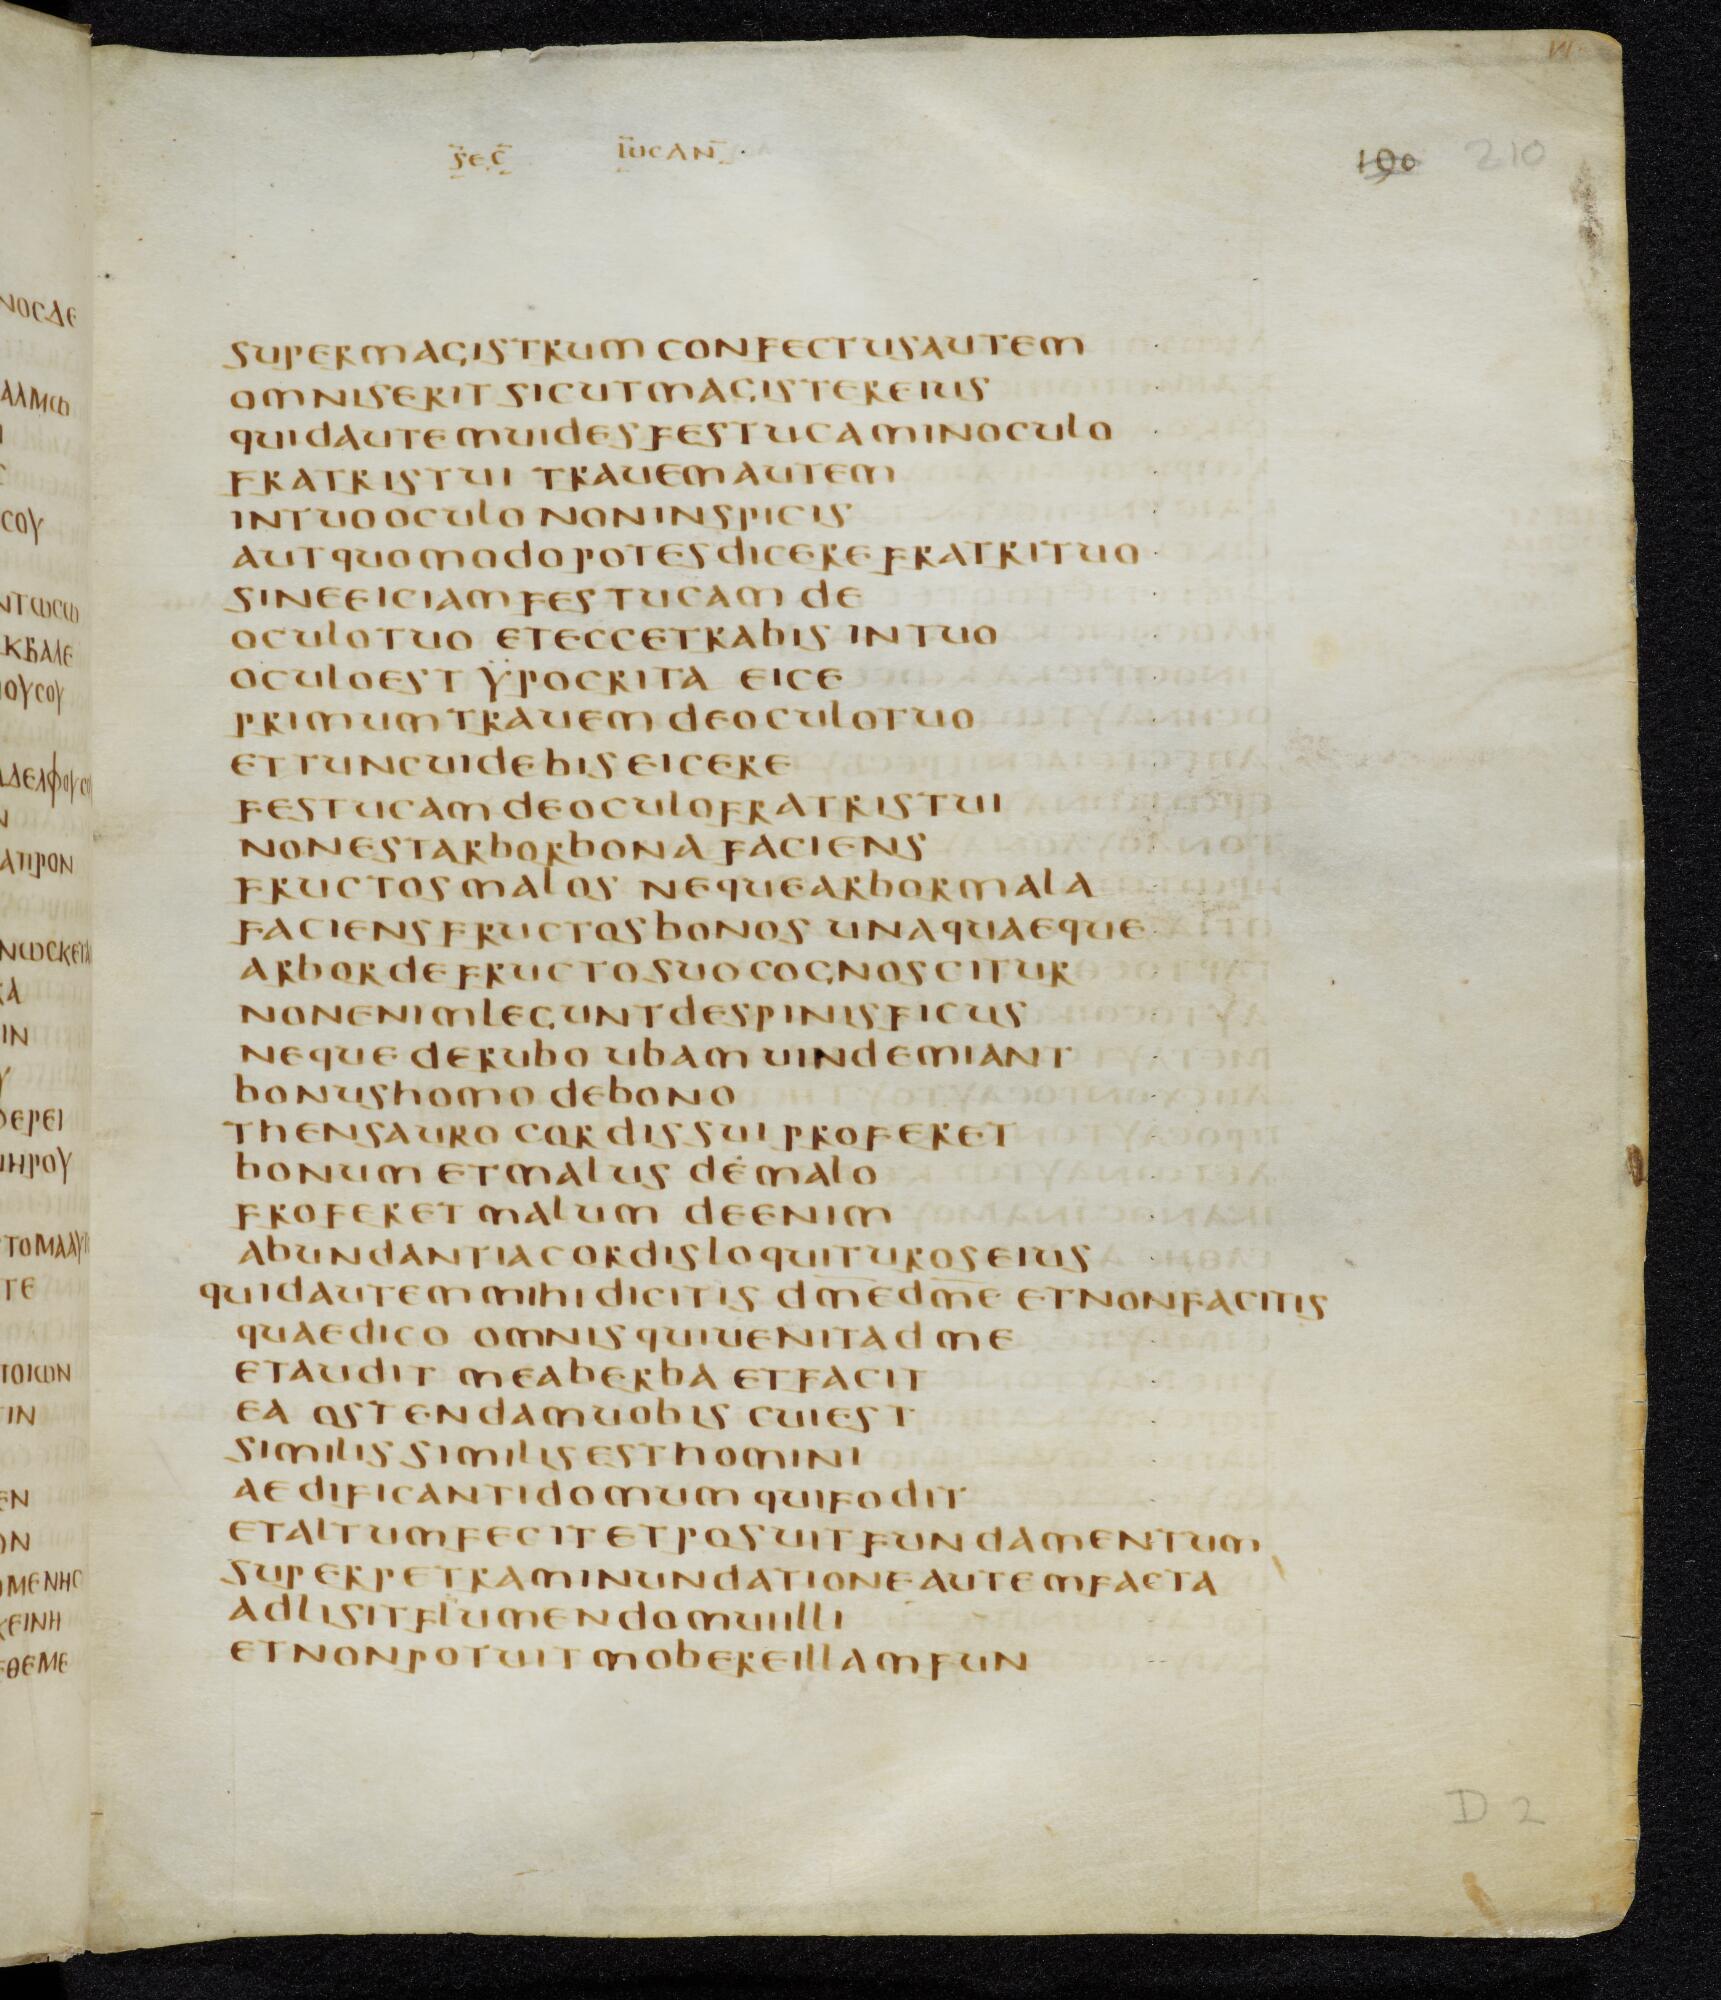 sec lucan
190 210
supermagistrum confectusautem
omniserit sicutmagistereius
quidautemuides festucaminoculo
fratristui trauemautem
intuooculo noninspicis
autquomodopotesdicere fratrituo
sineeiciamfestucam de
oculotuo etecce trabis intuo
oculoest ypocrita eice
primumtrauem deoculotuo
ettuncuidebis eicere
festucamdeoculofratristui
nonestarborbona faciens
fructosmalos nequearbormala
faciensfructosbonos unaquaeque
arbordefructosuocognoscitur
nonenimlegunt despinisficus
neque derubo ubam uindemiant
bonushomo debono
thensauro cordissui proferet
bonum etmalus demalo
froferet malum deenim
abundantiacordisloquituroseius
quidautemmihi dicitis dmedme etnonfacitis
quaedico omnisquiuenitad me
etaudit meaberba etfacit
ea ostendamuobis cuiest
similis similisesthomini
aedificantidomum quifodit
etaltumfecit etposuitfundamentum
superpetraminundationeautemfacta
adlisitflumendomuiilli
etnonpotuitmobereillamfun
D 2
νοσδε
αλμω
σου
ντωσω
κβαλε
ουσου
δελφουσο
νωσκετα
ιν
ερει
τομααυ
τε
τοιων
τιν
εν
ον
μενησ
κεινη
θεμε